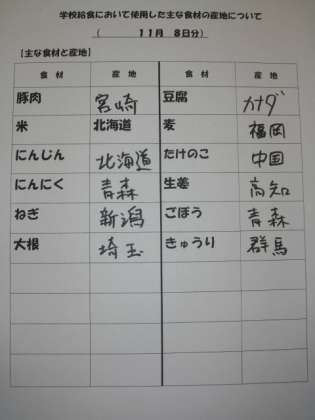 学校給食において使用した主な食材の産地について
（　11月　8日分）
【主な食材と産地】
食材　産地　食材　産地
豚肉　宮崎　豆腐　カナダ
米　北海道　麦　福岡
にんじん　北海道　たけのこ　中国
にんにく　青森　生姜　高知
ねぎ　新潟　ごぼう　青森
大根　埼玉　きゅうり　群馬